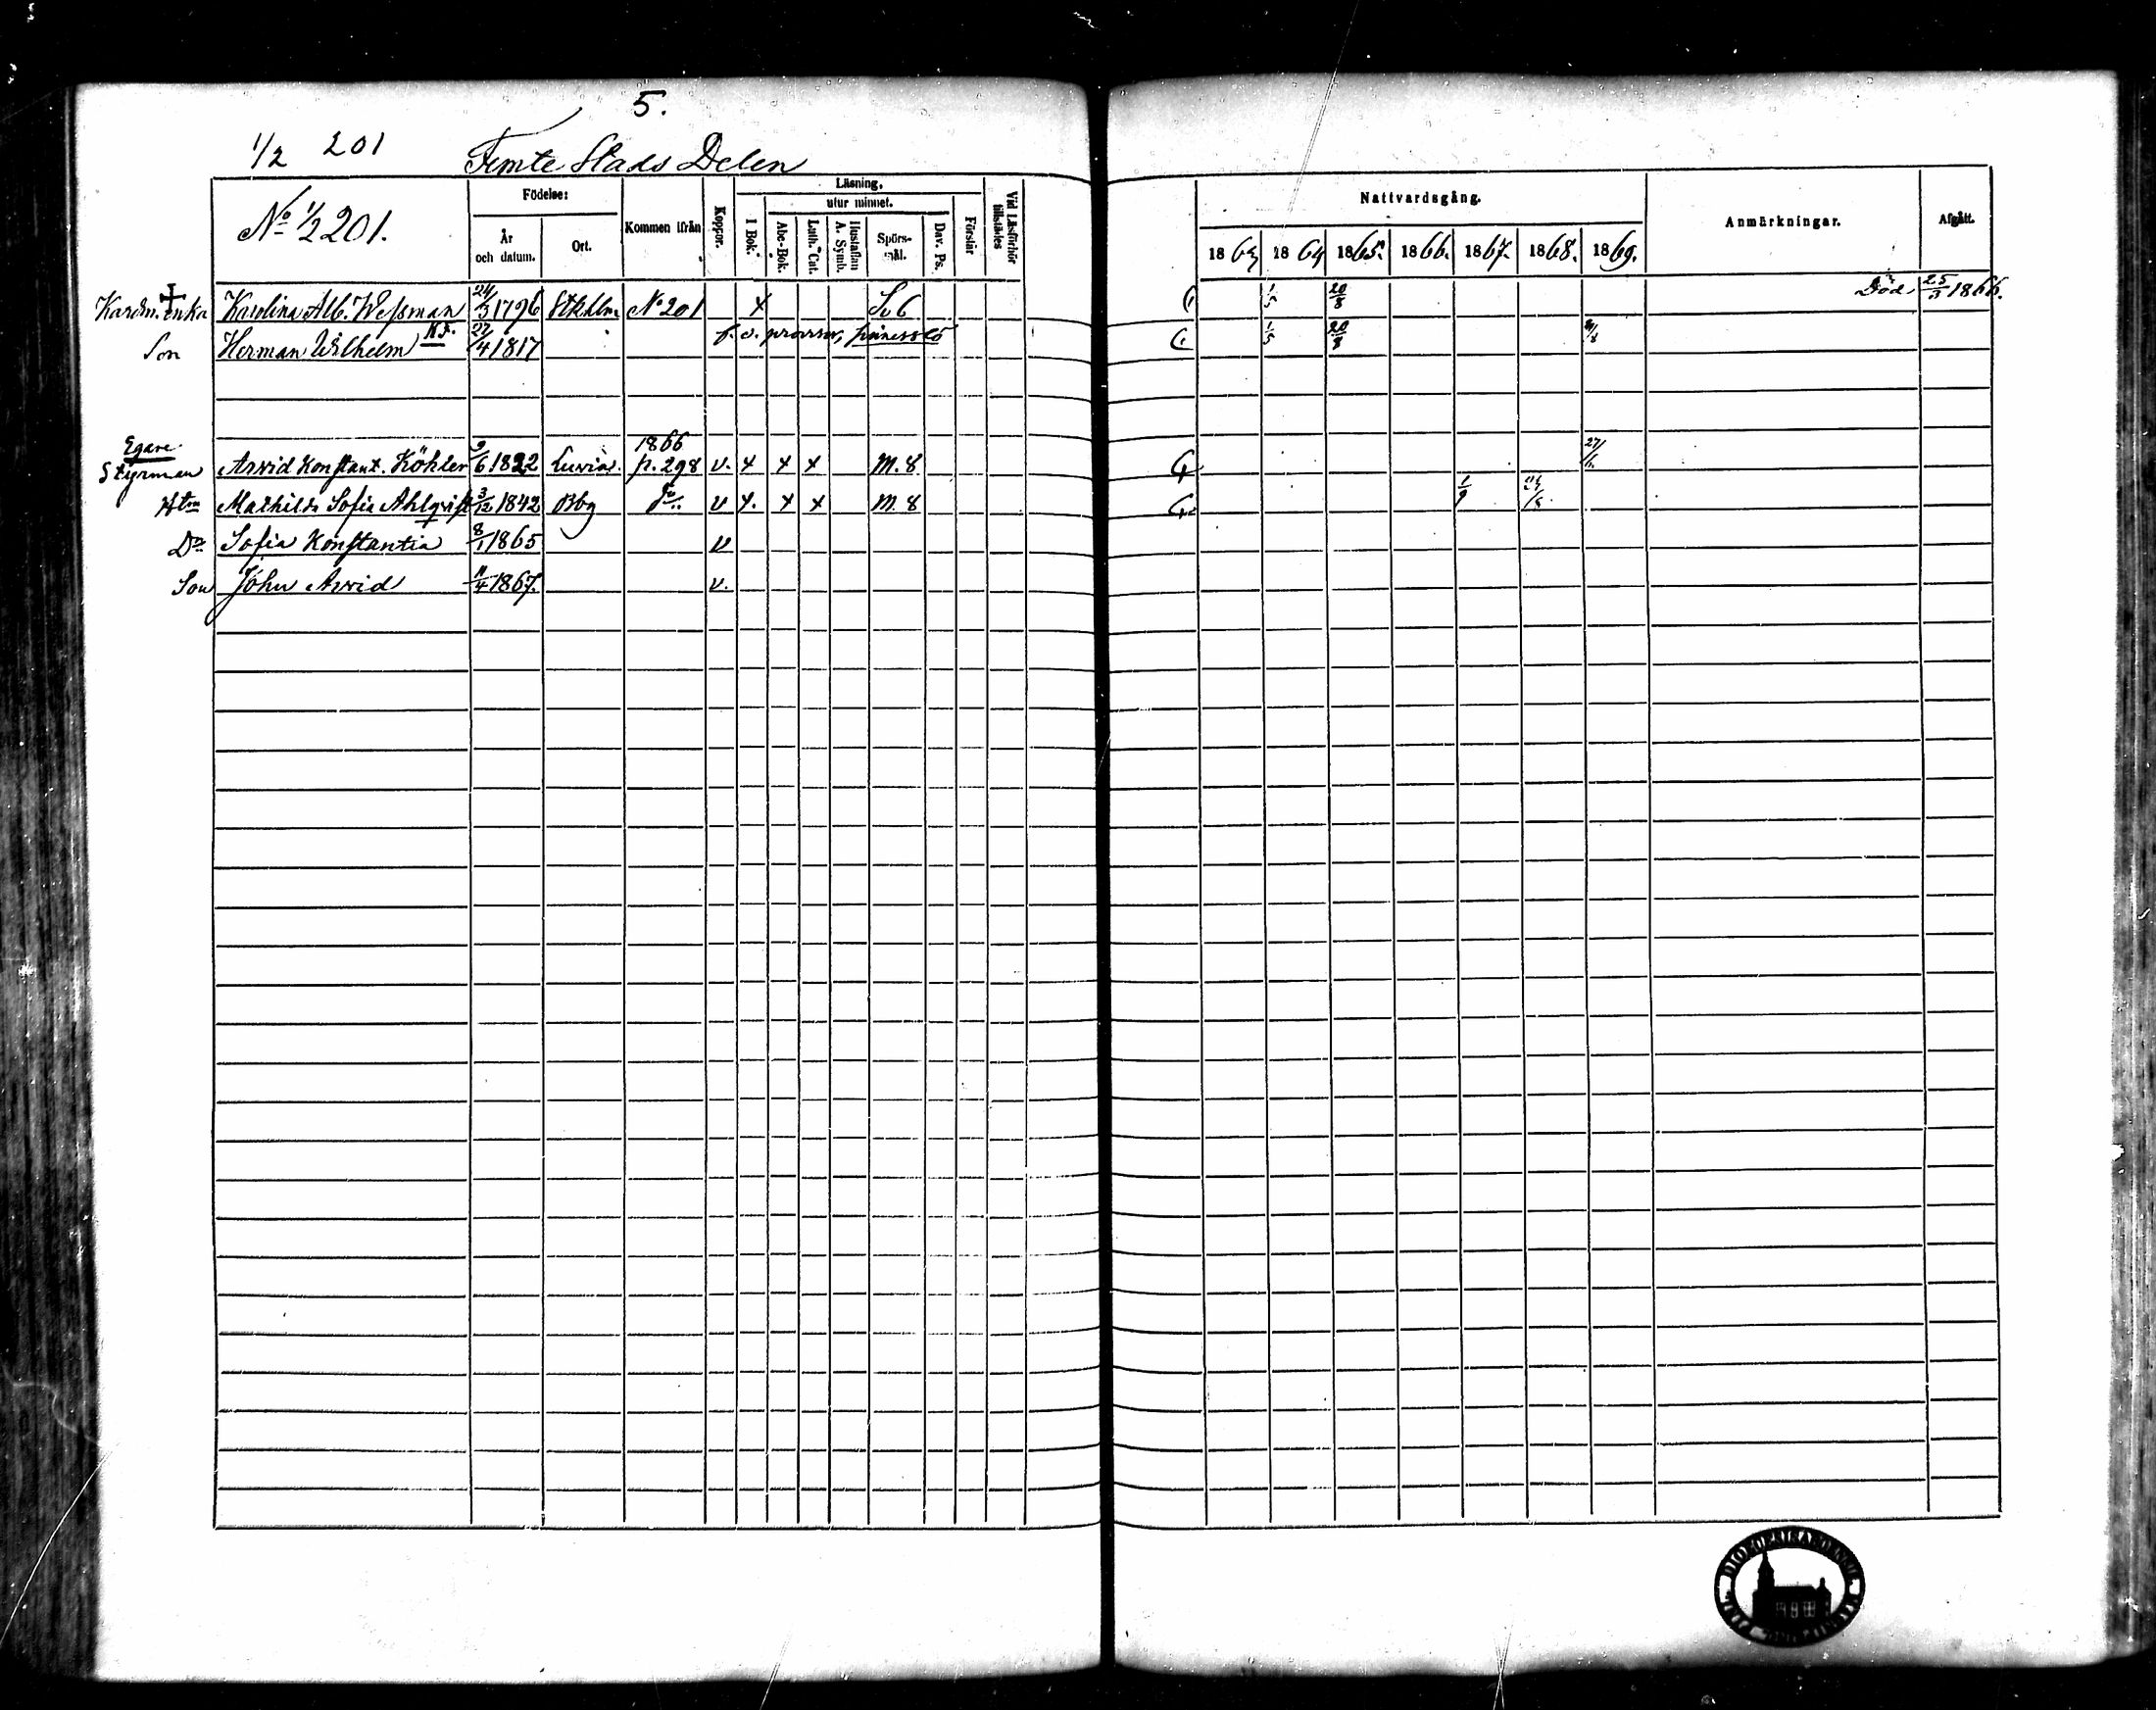 5.
1/2 201 Femte Stads Delen
No 1/2 201.
Födelse:
År och datum.
Ort.
Kommen ifrån
Koppor.
Läsning,
utur minnet.
I Bok.
Abc-Bok.
Luth. Cat.
Hustaflan A. Symb.
Spörsmål.
Dav. Ps.
Förstår
Vid Läsförhör tillstädes
Nattvardsgång.
1863 1864 1865. 1866. 1867. 1868. 1869.
Anmärkningar.
Afgått.
enka Karolina Alb. Weſsman 24/3 1796 Stkhlm No 201 x S. 6 1/5 20/8 Död 25/3 1866.
Son Herman Wilhelm 27/4 1817 1/5 20/8
Egare
Styrman Arvid Konstant. Köhler 9/6 1822 Luvia. 1866 p. 298 v. x x x M. 8
Mathilda Sofia Ahlqvist 3/12 1842 Bbg do v x. x x M. 8 1/9
Dr Sofia Konstantia 8/1 1865 v
Son John Arvid 11/4 1867. v.